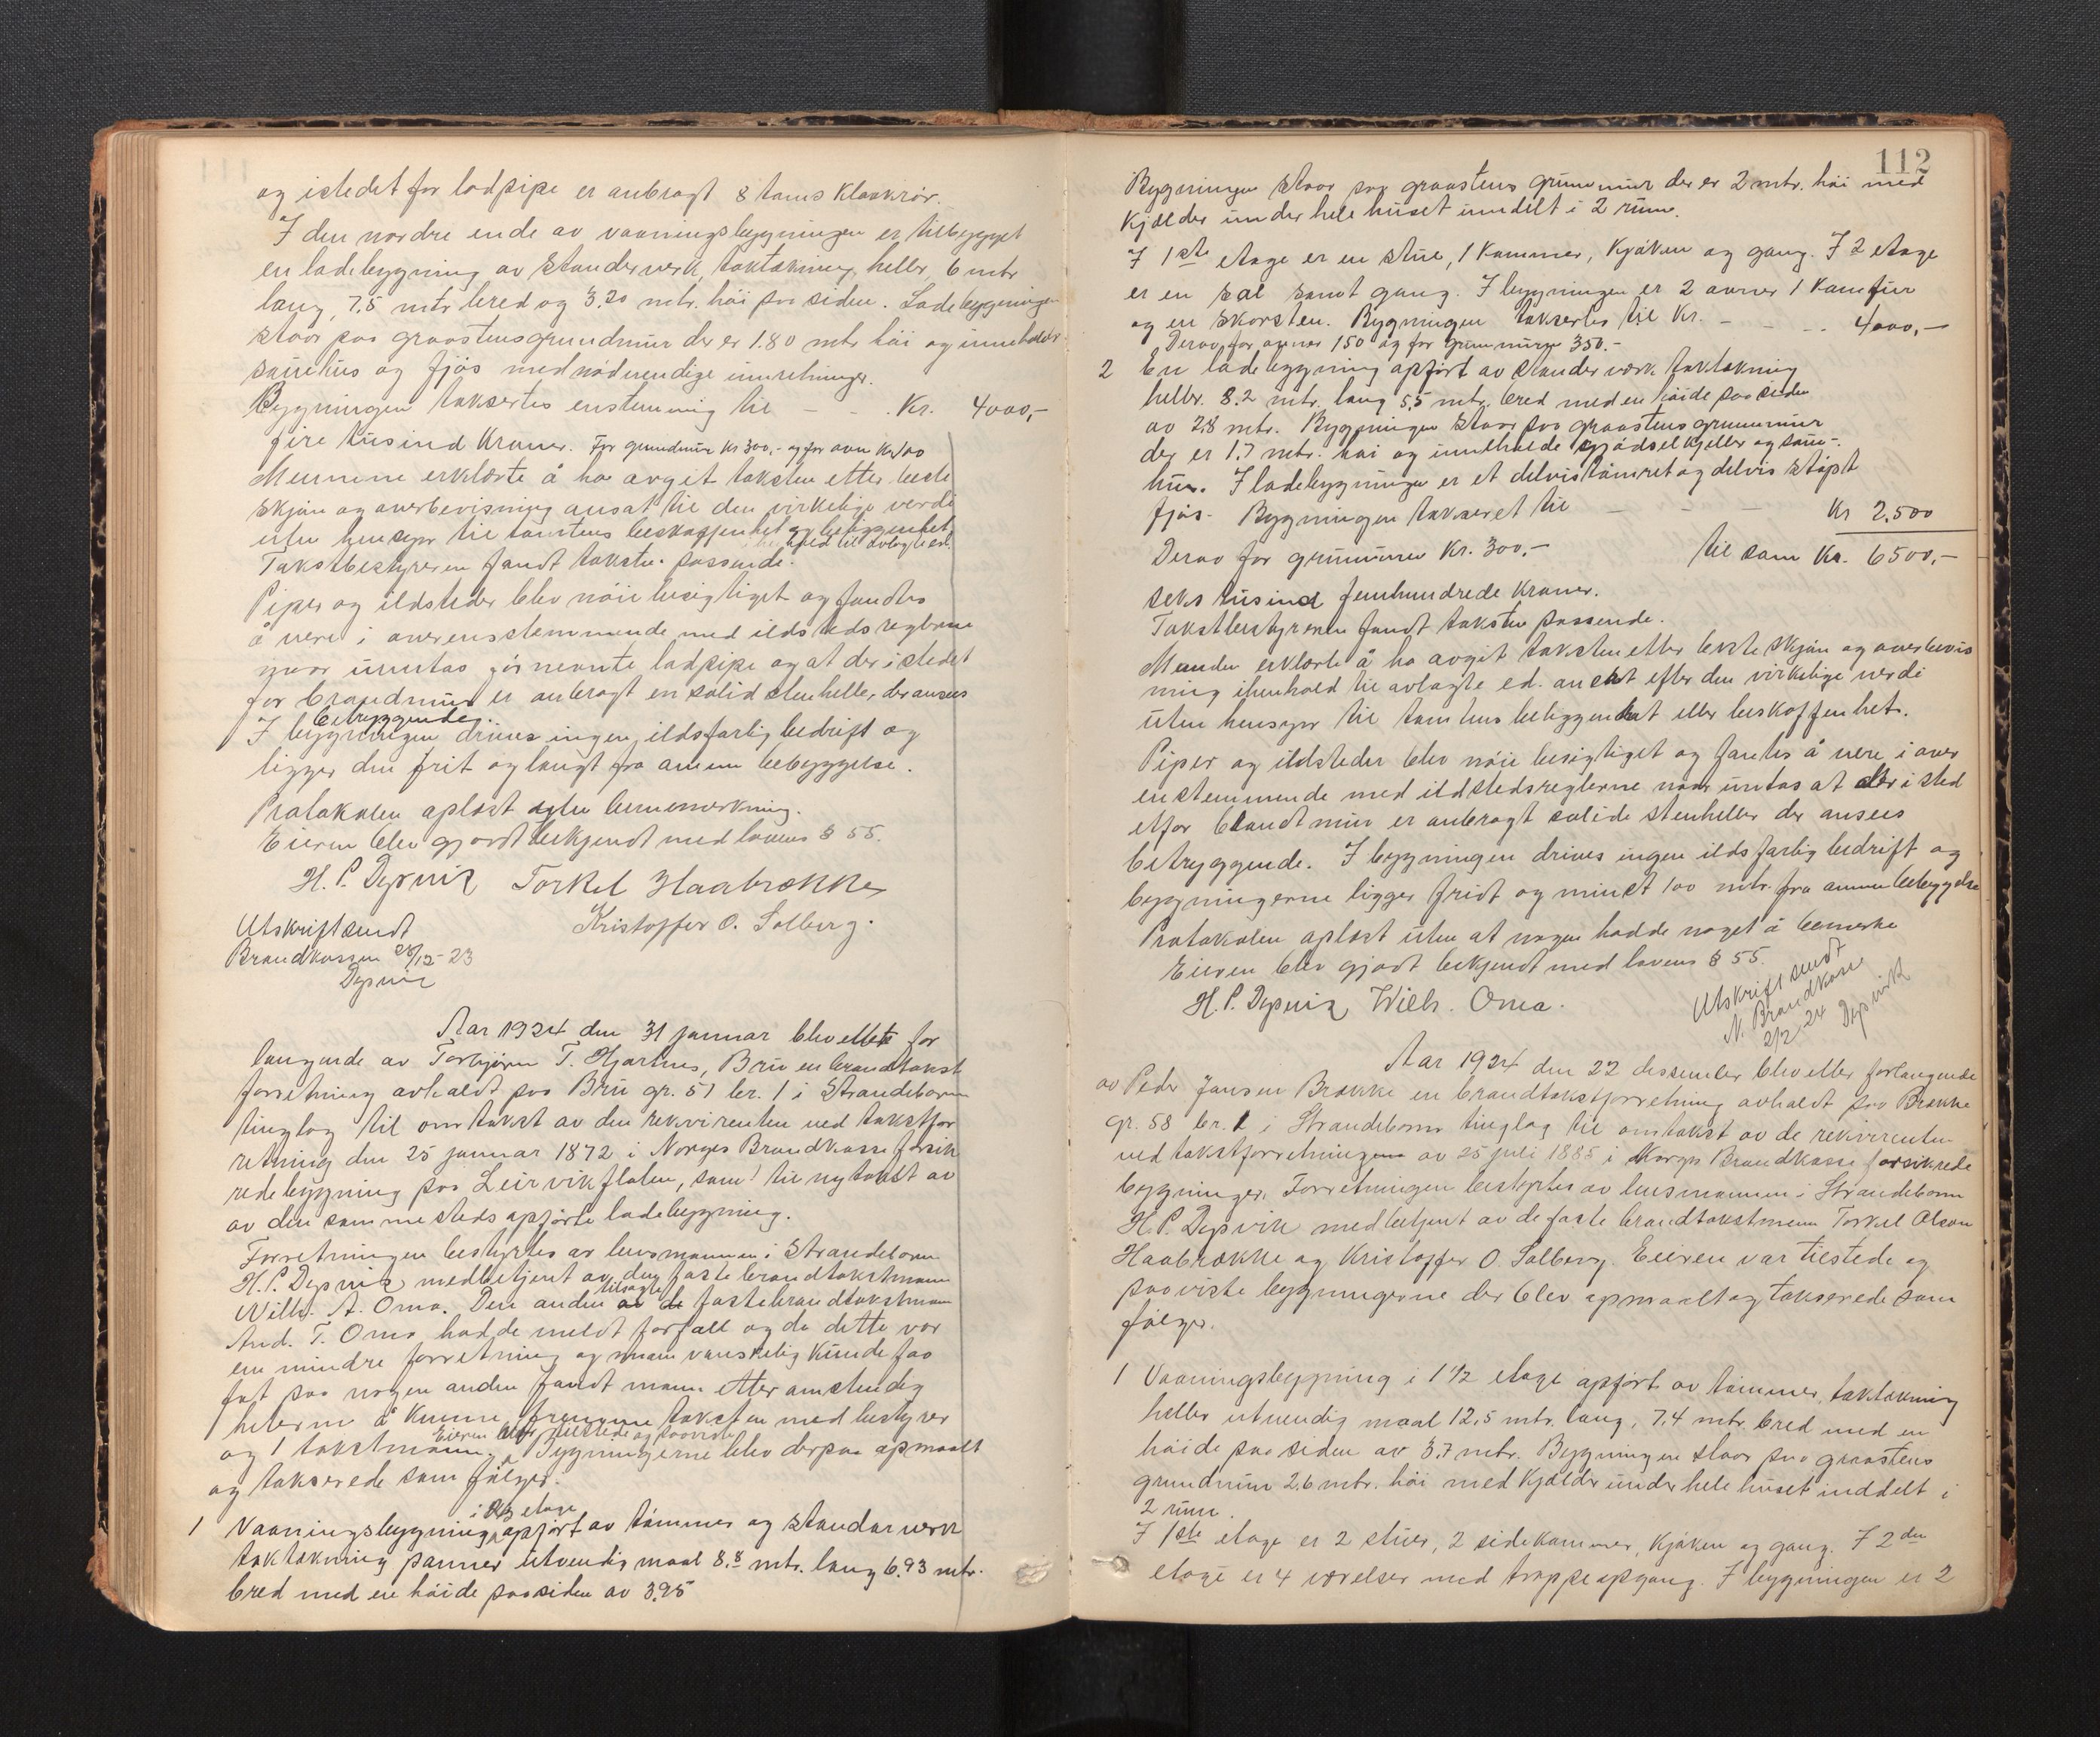 og istedet for ladpipe er anbragt 8 toms Kloakrör.
I den nordre ende av vaaningsbygningen er tilbygget
en ladebygning av standerverk, taktækning heller, 6 mtr
lang, 7,5 mtr bred og 3.20 mtr. höi paa siden. Ladebygningen
staar paa graastensgrundmur der er 1.80 mtr höi og inneholder
sauehus og fjös med nödvendige innretninger.
Bygningen taksertes enstemmig til - - . Kr. 4000,-
fire tusind Kroner. For grundmur Kr 300,- og for ovn Kr 100
Mennene erklærte å ha avgit taksten etter beste
skjön og overbevisning ansat til den virkelige verdi
uten hensyn til tomtens beskaffenhet og beliggenhet
hold til avlagte ed.
Takstbestyreren fandt taksten passende.
Piper og ildsteder blev nöie besigtiget og fandtes
å være i overensstemmende med ildstedsreglerne
naar unntas förnevnte ladpipe og at der istedet
for brandmur er anbragt en solid stenhelle, der ansees
betryggende.
I bygningen drives ingen ildsfarlig bedrift og
ligger den frit og langt fra annen bebyggelse.
Protokolen oplæst uten bemerkning.
Eieren blev gjordt bekjendt med lovens § 55.
H. P. Depvik Torkel Haabrække
Kristoffer O. Solberg.
Utskrift sendt
Brandkassen 28/12-23
Depvik
Aar 1924 den 31 januar blev efter for
langende av Torbjörn T. Hjartnes, Bru en brandtakst
forretning avholdt paa Bru gr. 51 br. 1 i Strandebarm
tinglag til omtakst av den rekvirenten ved takstfor
retning den 25 januar 1872 i Norges Brandkasse forsik
rede bygning paa Leirvikflaten, samt til nytakst av
av den sammesteds opförte ladebygning.
Forretningen bestyrtes av lensmannen i Strandebarm
H.P. Depvik medbetjent av den faste brandtakstmann
Wilh. A. Oma. Den anden tilsagte faste brandtakstman
And. T. Oma hadde meldt forfall og da dette var
en mindre forretning og man vanskelig kunde faa
fat paa nogen anden fandt mann etter omstendig
heterne å kunne fremme taksten med bestyrer
Eieren blev tilstede og paaviste
og 1 takstmann. Bygningerne blev derpaa opmaalt
og takserede som fölger.
i 1½ etage
1 Vaaningsbygning opfört av tömmer og standarverk
taktækning panner utvendig maal 8.8 mtr. lang 6.93 mtr.
bred med en höide paa siden av 3.95
112
Bygningen staar paa graastens grunnmur der er 2 mtr. höi med
Kjælder under hele huset inndelt i 2 rum.
I 1ste etage er en stue, 1 Kammer, Kjöken og gang. I 2 etage
er en sal samt gang. I bygningen er 2 ovner 1 Komfur
og en skorsten. Bygningen taksertes til Kr. - - - .. 4000,-
Derav for ovner 150 og for grunnmuren 350.-
2 En ladebygning opfört av standerværk taktækning
heller. 8.2 mtr. lang 5,5 mtr. bred med en höide paa siden
av 2.8 mtr. Bygningen staar paa graastens grunnmur
der er 1.7 mtr. höi og inneholde gjödselkjeller og saue-
hus. I ladebygningen er et delvis tömret og delvis stöpt
fjös. Bygningen takseret til - - - Kr 2.500
Derav for grunnmuren Kr. 300,- til sam Kr. 6500,-
seks tusind femhundrede Kroner.
Takstbestyreren fandt taksten passende.
Manden erklærte å ha avgit taksten efter beste skjön og overbevis
ning ihenhold til avlagte ed. ansat efter den virkelige verdi
uten hensyn til tomtens beliggenhet eller beskaffenhet.
Piper og ildsteder blev nöie besigtiget og fantes å være i over
enstemmende med ildstedsreglerne naar untas at der i sted
etfor brandtmur er anbragt solide stenheller der ansees
betryggende. I bygningen drives ingen ildsfarlig bedrift og
bygningerne ligger fridt og minst 100 mtr. fra annen bebyggelse
Protokolen oplæst uten at nogen hadde noget å bemerke
Eieren blev gjort bekjendt med lovens § 55.
H. P. Depvik Wilh. Oma.
Utskrift sendt
N. Brandkasse
2/2 24 Depvik
Aar 1924 den 22 desember blev efter forlangende
av Peder Jansen Brække en brandtakstforretning avholdt paa Brække
gr. 58 br. 1 i Strandebarm tinglag til omtakst av de rekvirenten
ved takstforretningen av 25 juli 1885 i Norges Brandkasse forsikrede
bygninger. Forretningen bestyrtes av lensmannen i Strandebarm
H.P. Depvik medbetjent av de faste brandtakstmenn Torkel Olson
Haabrække og Kristoffer O. Solberg. Eieren var tilstede og
paaviste bygningerne der blev opmaalt og takserede som
fölger.
1 Vaaningsbygning i 1 1/2 etage opfört av tömmer, taktækning
heller utvendig maal 12,5 mtr. lang, 7.4 mtr. bred med en
höide paa siden av 3.7 mtr. Bygningen staar paa graastens
grundmur 2.6 mtr. höi med Kjælder under hele huset inddelt i
2 rum.
I 1ste etage er 2 stuer, 2 sidekammer, Kjöken og gang. I 2den
etage er 4 værelser med trappeopgang. I bygningen er 2